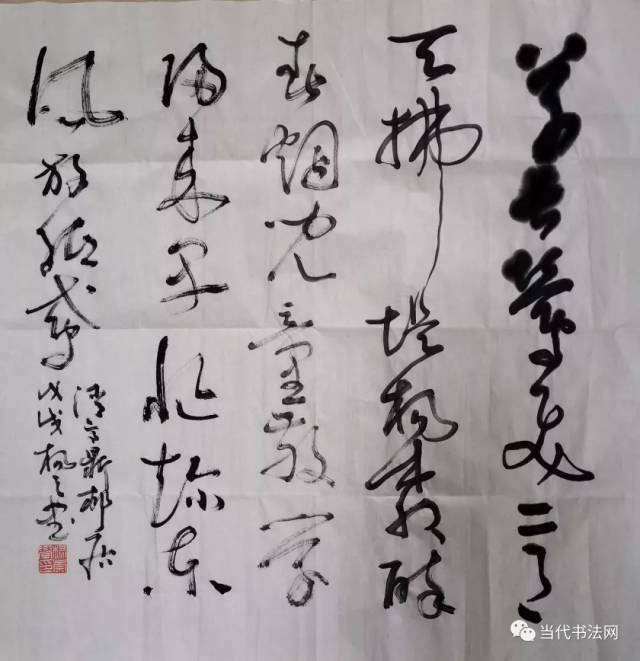 草长莺飞二月
天拂堤杨柳醉
春烟儿童散学
归来早忙趁东
风放纸鸢
清高鼎村居
戊戌杨之书
当代书法网